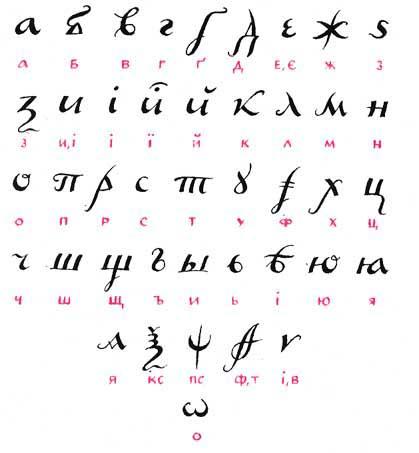 а б в г ґ д є ж ѕ
а б в г ґ д е,є ж з
з и і ї й к л м н
з и,і і ї й к л м н
о п р с т ꙋ ф х ц
о п р с т у ф х ц
ч ш щ ъ ы ь ѣ ю ꙗ
ч ш щ ъ и ь і ю я
ѧ ѯ ѱ ѳ ѵ
я кс пс ф,т і,в
ѡ
о